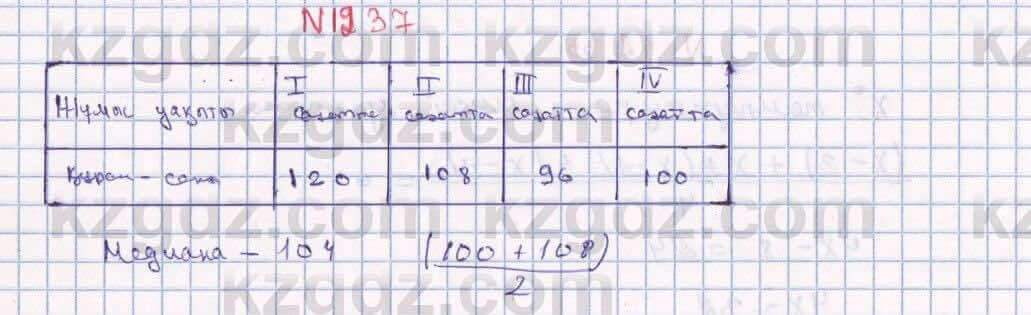 N 1237
Жұмыс уақыты I сағатта II сағатта III сағатта IV сағатта
сана 120 108 96 100
Медиана – 104 (100 + 108)
2
kzgdz.com